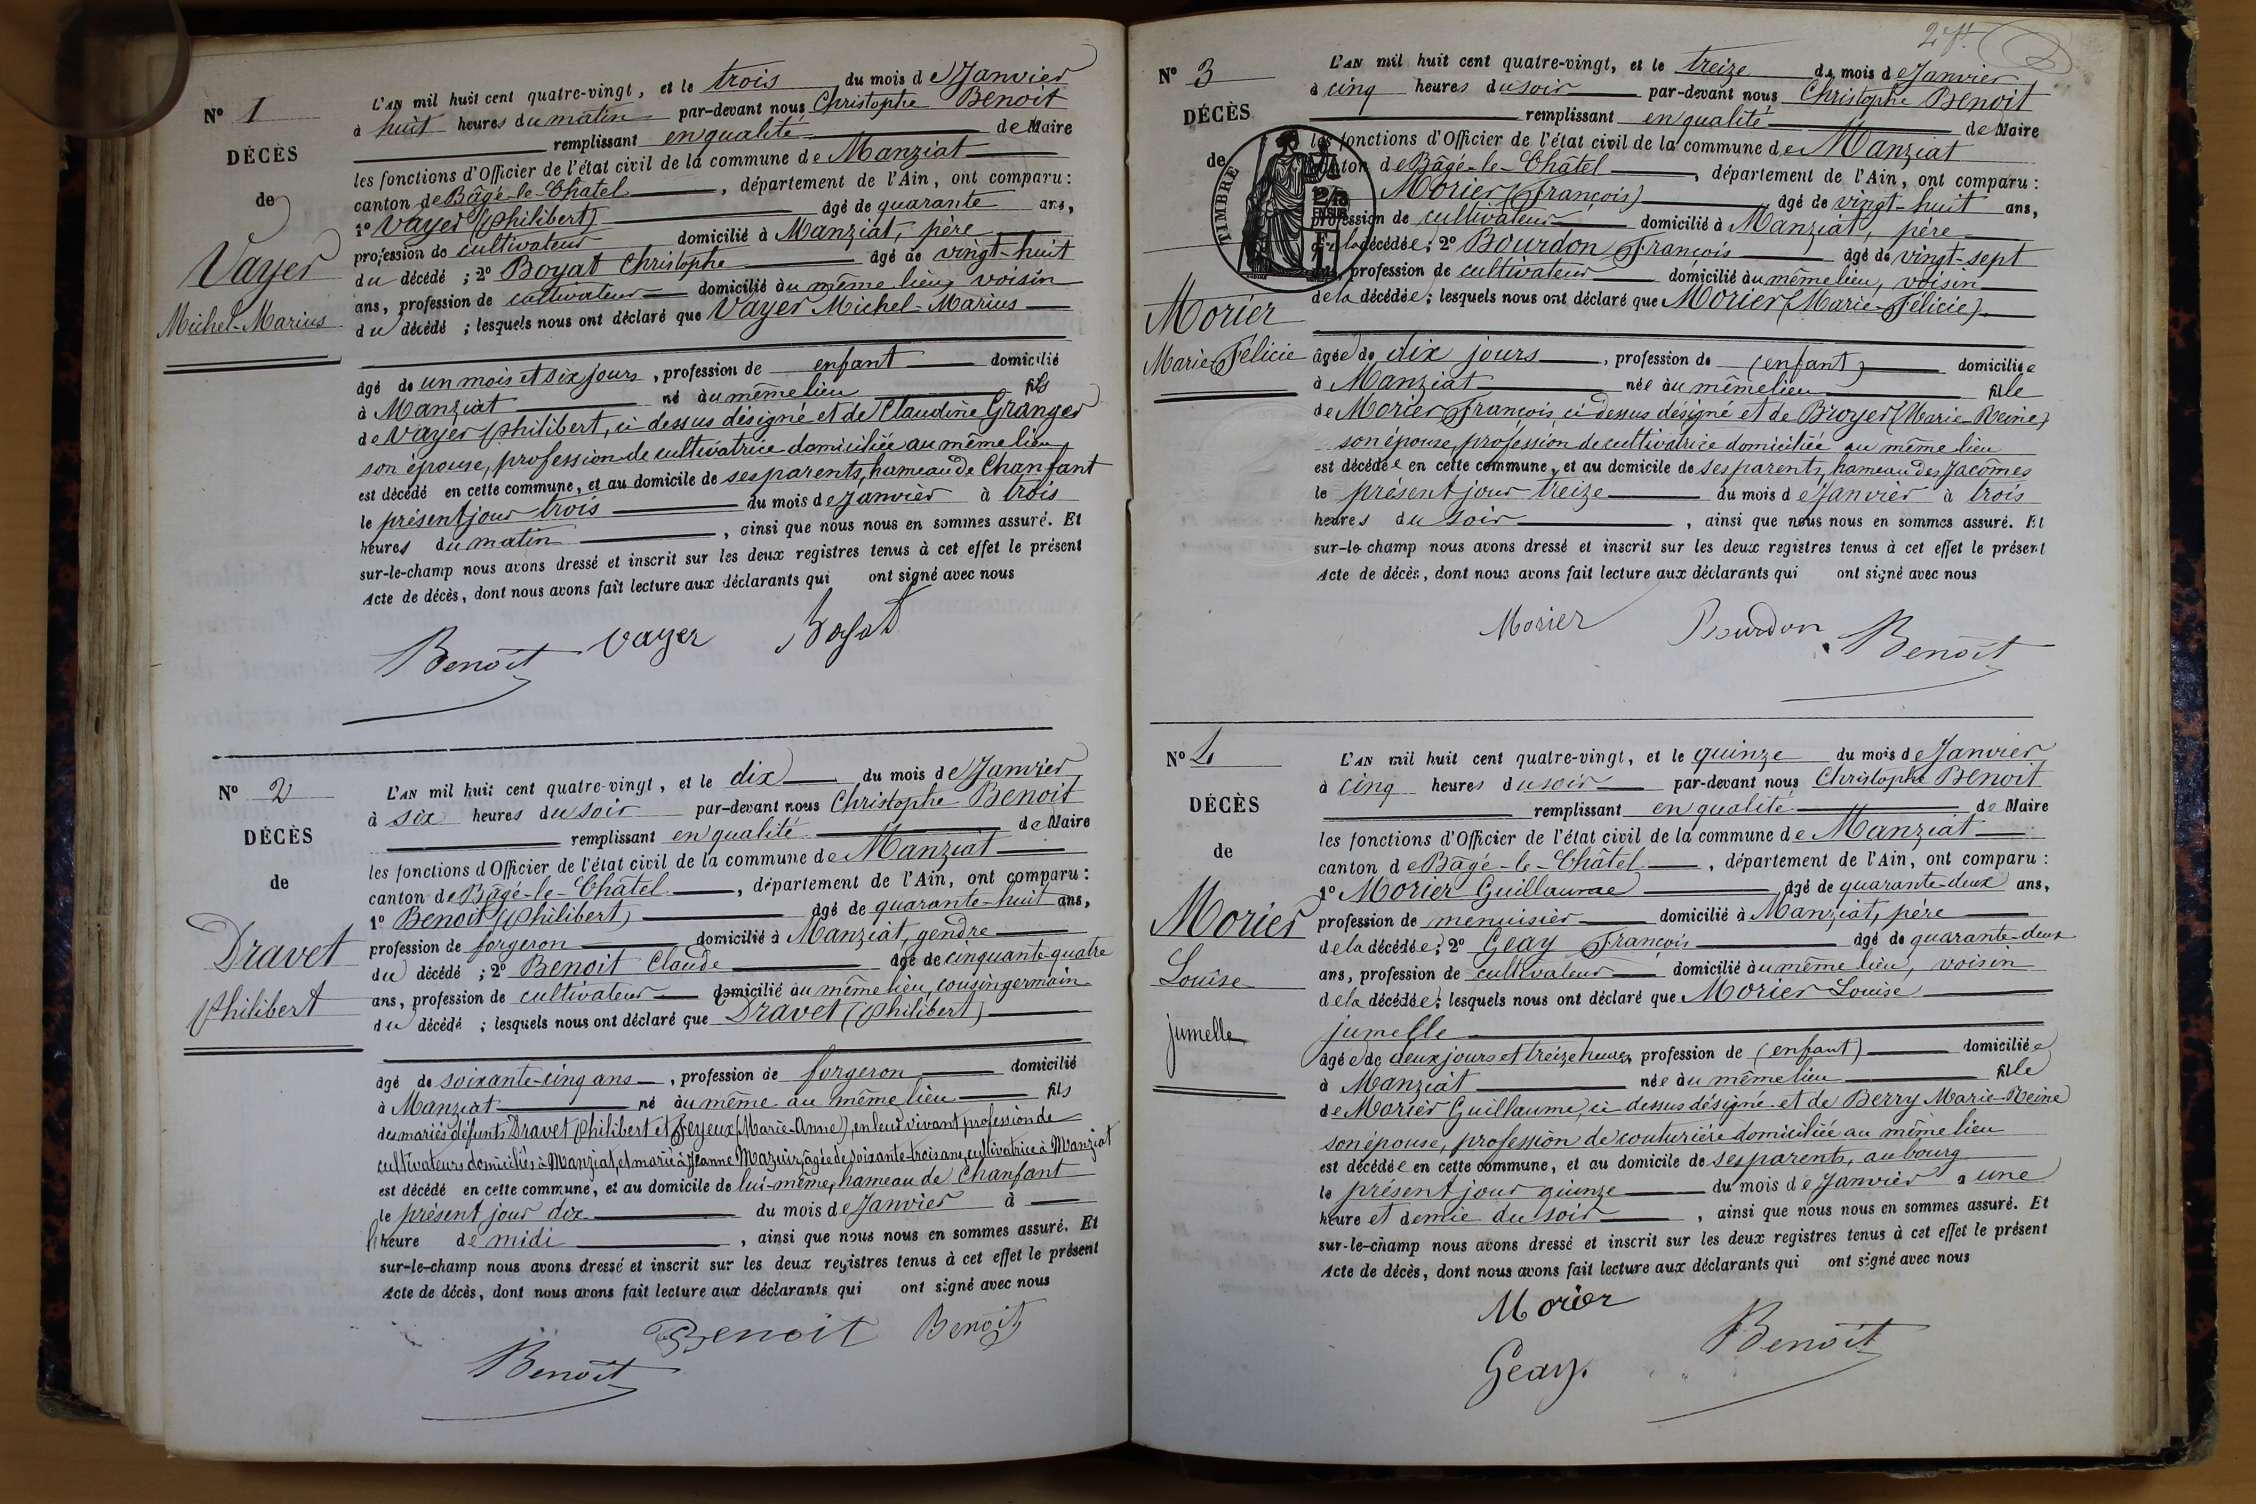 N° 1
DÉCÈS
de
Vayer
Michel-Marius
L'AN mil huit cent quatre-vingt, et le trois du mois de Janvier
à huit heures du matin par-devant nous Christophe Benoit
remplissant en qualité de Maire
les fonctions d'Officier de l'état civil de la commune de Manziat
canton de Bâgé-le-Châtel, département de l'Ain, ont comparu :
1° Vayer (Philibert) âgé de quarante ans,
profession de cultivateur domicilié à Manziat, père
du décédé ; 2° Boyat Christophe âgé de vingt-huit
ans, profession de cultivateur domicilié au même lieu, voisin
du décédé ; lesquels nous ont déclaré que Vayer Michel-Marius
âgé de un mois et six jours, profession de enfant domicilié
à Manziat né au même lieu fils
de Vayer Philibert, ci-dessus désigné et de Claudine Granger
son épouse, profession de cultivatrice domiciliée au même lieu
est décédé en cette commune, et au domicile de ses parents, hameau de Chanfant
le présent jour trois du mois de Janvier à trois
heures du matin, ainsi que nous nous en sommes assuré. Et
sur-le-champ nous avons dressé et inscrit sur les deux registres tenus à cet effet le présent
Acte de décès, dont nous avons fait lecture aux déclarants qui ont signé avec nous
Benoit Vayer Boyat
N° 2
DÉCÈS
de
Dravet
Philibert
L'AN mil huit cent quatre-vingt, et le dix du mois de Janvier
à six heures du soir par-devant nous Christophe Benoit
remplissant en qualité de Maire
les fonctions d'Officier de l'état civil de la commune de Manziat
canton de Bâgé-le-Châtel, département de l'Ain, ont comparu :
1° Benoit (Philibert) âgé de quarante-huit ans,
profession de forgeron domicilié à Manziat, gendre
du décédé ; 2° Benoit Claude âgé de cinquante-quatre
ans, profession de cultivateur domicilié au même lieu, cousin germain
du décédé ; lesquels nous ont déclaré que Dravet (Philibert)
âgé de soixante-cinq ans, profession de forgeron domicilié
à Manziat né au même au même lieu fils
des mariés défunts Dravet Philibert et Feyeux (Marie-Anne), en leur vivant profession de
cultivateurs domiciliés à Manziat, et marié à Jeanne Mazuir, âgée de soixante-trois ans, cultivatrice à Manziat
est décédé en cette commune, et au domicile de lui-même, hameau de Chanfant
le présent jour dix du mois de Janvier à
heure de midi, ainsi que nous nous en sommes assuré. Et
sur-le-champ nous avons dressé et inscrit sur les deux registres tenus à cet effet le présent
Acte de décès, dont nous avons fait lecture aux déclarants qui ont signé avec nous
Benoit Benoit Benoit
N° 3
DÉCÈS
de
TIMBRE
Morier
Marie Félicie
L'AN mil huit cent quatre-vingt, et le treize du mois de Janvier
à cinq heures du soir par-devant nous Christophe Benoit
remplissant en qualité de Maire
les fonctions d'Officier de l'état civil de la commune de Manziat
canton de Bâgé-le-Châtel, département de l'Ain, ont comparu :
Morier (François) âgé de vingt-huit ans,
profession de cultivateur domicilié à Manziat, père
de la décédée ; 2° Bourdon François âgé de vingt-sept
ans, profession de cultivateur domicilié au même lieu, voisin
de la décédée ; lesquels nous ont déclaré que Morier (Marie-Félicie)
âgée de dix jours, profession de (enfant) domiciliée
à Manziat née au même lieu fille
de Morier François, ci-dessus désigné et de Broyer (Marie-Reine)
son épouse, profession de cultivatrice domiciliée au même lieu
est décédée en cette commune, et au domicile de ses parents, hameau des Jacomes
le présent jour treize du mois de Janvier à trois
heures du soir, ainsi que nous nous en sommes assuré. Et
sur-le-champ nous avons dressé et inscrit sur les deux registres tenus à cet effet le présent
Acte de décès, dont nous avons fait lecture aux déclarants qui ont signé avec nous
Morier Bourdon Benoit
N° 4
DÉCÈS
de
Morier
Louise
jumelle
L'AN mil huit cent quatre-vingt, et le quinze du mois de Janvier
à cinq heures du soir par-devant nous Christophe Benoit
remplissant en qualité de Maire
les fonctions d'Officier de l'état civil de la commune de Manziat
canton de Bâgé-le-Châtel, département de l'Ain, ont comparu :
1° Morier Guillaume âgé de quarante-deux ans,
profession de menuisier domicilié à Manziat, père
de la décédée ; 2° Geay François âgé de quarante-deux
ans, profession de cultivateur domicilié au même lieu, voisin
de la décédée ; lesquels nous ont déclaré que Morier Louise
jumelle
âgée de deux jours et treize heures, profession de (enfant) domiciliée
à Manziat née au même lieu fille
de Morier Guillaume, ci-dessus désigné et de Berry Marie-Reine
son épouse, profession de couturière domiciliée au même lieu
est décédée en cette commune, et au domicile de ses parents, au bourg
le présent jour quinze du mois de Janvier à une
heure et demie du soir, ainsi que nous nous en sommes assuré. Et
sur-le-champ nous avons dressé et inscrit sur les deux registres tenus à cet effet le présent
Acte de décès, dont nous avons fait lecture aux déclarants qui ont signé avec nous
Morier
Benoit
Geay.